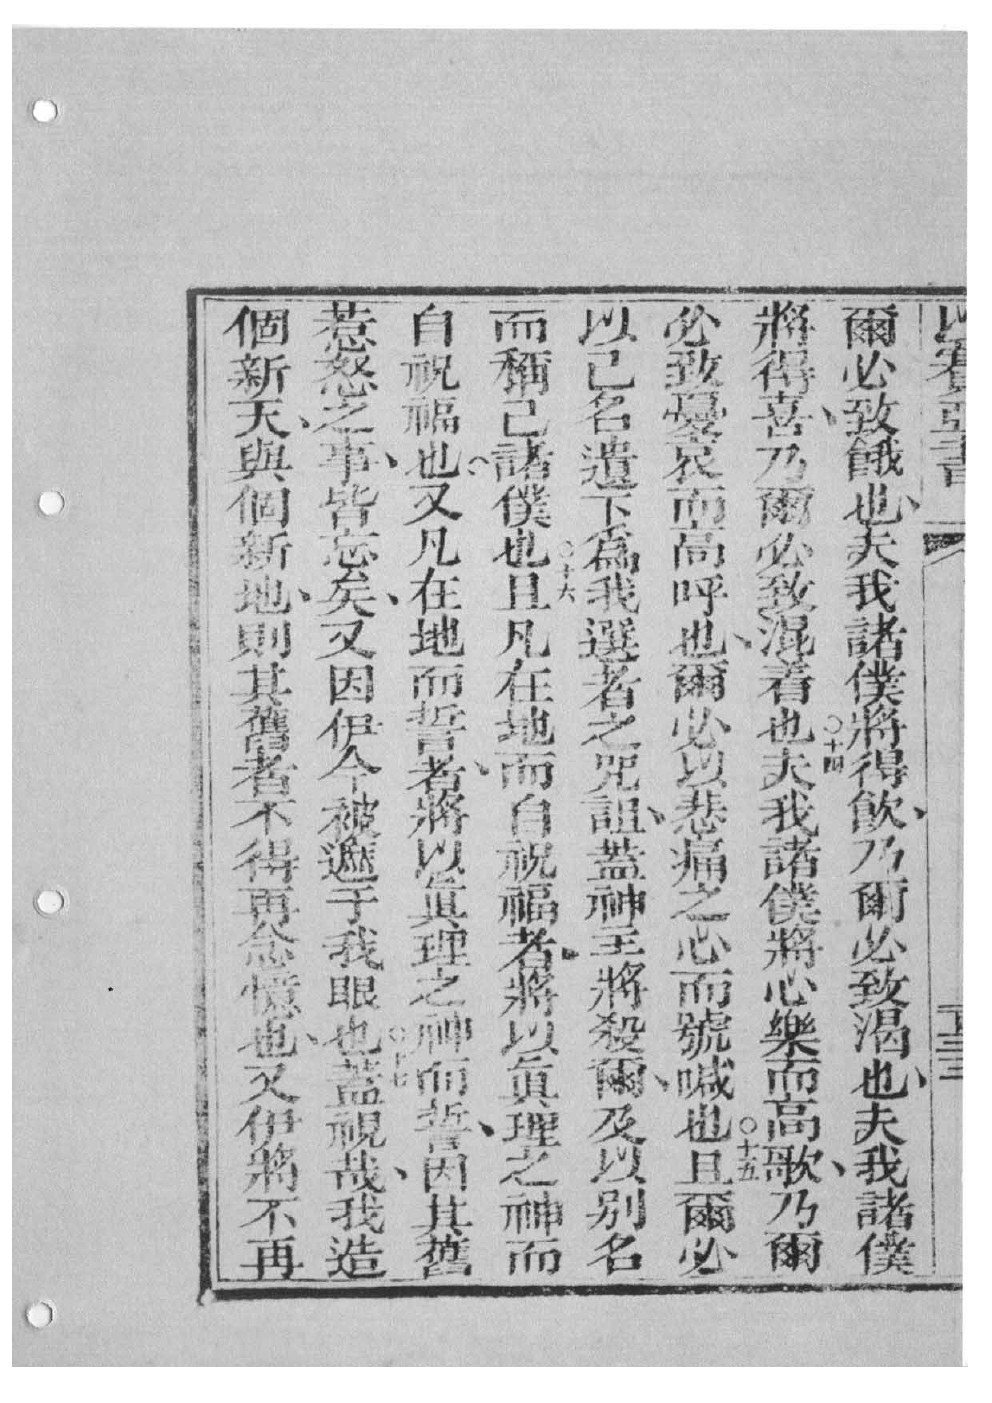 以賽亞書
爾必致餓也、夫我諸僕將得飲、乃爾必致渴也、夫我諸僕
將得喜、乃爾必致混着也○十四夫我諸僕將心樂而高歌、乃爾
必致憂哀而高呼也、爾必以悲痛之心而號喊也○十五且爾必
以己名遺下爲我選者之咒詛、蓋神主將殺爾、及以别名
而稱己諸僕也○十六且凡在地而自祝福者、將以眞理之神而
自祝福也、又凡在地而誓者、將以眞理之神而誓、因其舊
惹怒之事、皆忘矣、又因伊今被遮于我眼也○十七蓋視哉、我造
個新天、與個新地、則其舊者不得再念憶也、又伊將不再